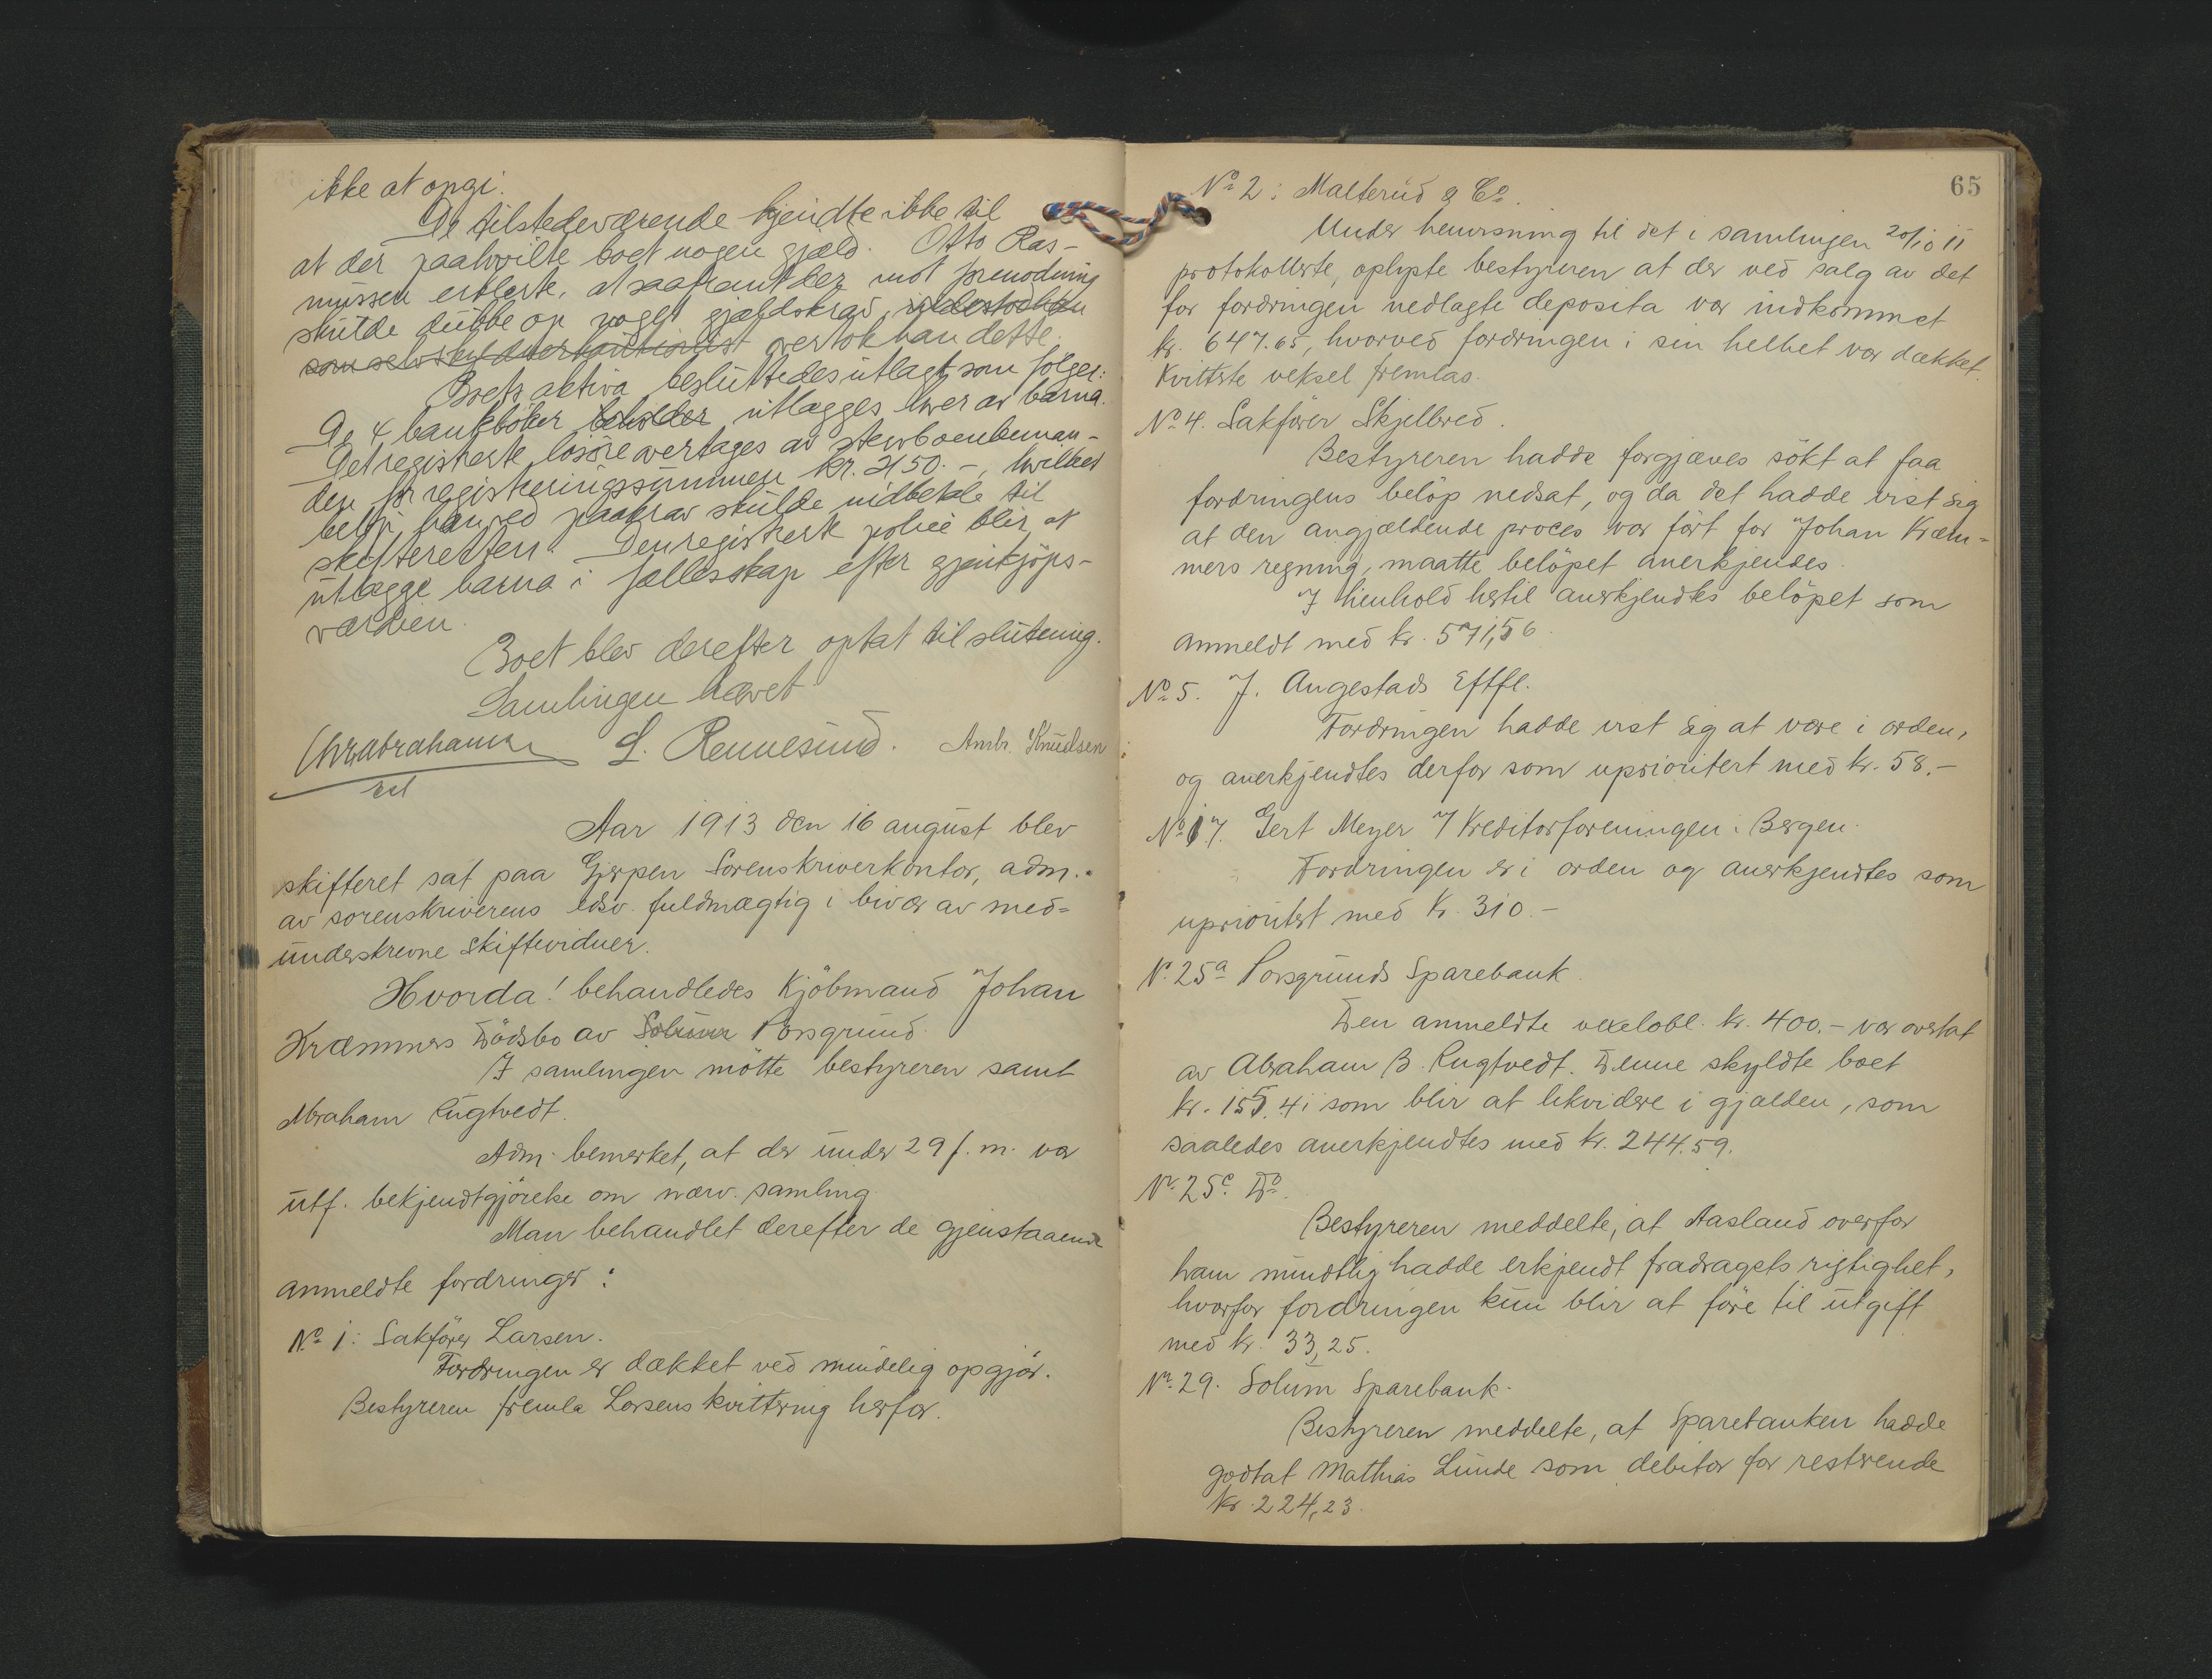 ikke at opgi.
De tilstedeværende kjendte ikke til
at der paahvilte boet nogen gjæld. Otto Ras-
mussen erklærte, at saafremt der mot formodning
skulde dukke op noget gjældskrav,
som selvskyldnerkautionist overtok han dette.
Boets aktiva besluttedes utlagt som følger:
De 4 bankbøker beholder utlægges hver av barna.
Det registrerte løsøre overtages av sterboenkeman-
den for registreringssummen kr. 2150.-, hvilket
beløp han ved paakrav skulde indbetale til
skifteretten. Den registrerte police blir at
utlægge barna i fællesskap efter gjenkjøps-
værdien.
Boet blev derefter optat til slutning.
Samlingen hævet
Chr Abrahamsen L. Rennesund. Ambr. Knudsen
cst
Aar 1913 den 16 august blev
skifteret sat paa Gjerpen Sorenskriverkontor, adm.
av sorenskriverens edsv. fuldmægtig i bivær av med-
underskrevne skiftevidner.
Hvorda! behandledes Kjöbmand Johan
Kræmmers Dödsbo av Solum Porsgrund.
I samlingen mötte bestyreren samt
Abraham Rugtvedt.
Adm. bemerket, at der under 29 f. m. var
utf. bekjendtgjörelse om nærv. samling.
Man behandlet derefter de gjenstaaende
anmeldte fordringer:
No 1: Sakförer Larsen.
Fordringen er dækket ved mindelig opgjör.
Bestyreren fremla Larsens kvittering herfor.
65
No 2: Malterud & Co.
Under henvisning til det i samlingen 20/10 11
protokollerte, oplyste bestyreren at der ved salg av det
for fordringen nedlagte deposita var indkommet
kr. 647.65, hvorved fordringen i sin helhet var dækket.
Kvitterte veksel fremlas.
No 4. Sakförer Skjelbred.
Bestyreren hadde forgjæves sökt at faa
fordringens belöp nedsat, og da det hadde vist sig
at den angjældende proces var fört for Johan Kræm-
mers regning, maatte belöpet anerkjendes.
I henhold hertil anerkjendtes belöpet som
anmeldt med kr. 571,56.
No 5. J. Augestads Eftfl.
Fordringen hadde vist sig at være i orden,
og anerkjendtes derfor som uprioritert med kr. 58.-
No 17. Gert Meyer / Kreditorforeningen i Bergen.
Fordringen er i orden og anerkjendtes som
uprioritert med kr. 310.-
No 25a Porsgrunds Sparebank.
Den anmeldte vexelobl. kr. 400.- var overtat
av Abraham B. Rugtvedt. Denne skyldte boet
kr. 155.41 som blir at likvidere i gjælden, som
saaledes anerkjendtes med kr. 244.59.
No 25c Do.
Bestyreren meddelte, at Aasland overfor
ham mundtlig hadde erkjendt fradragets rigtighet,
hvorfor fordringen kun blir at före til utgift
med kr. 33,25.
No 29. Solum Sparebank.
Bestyreren meddelte, at Sparebanken hadde
godtat Mathias Lunde som debitor for resterende
kr. 224,23.